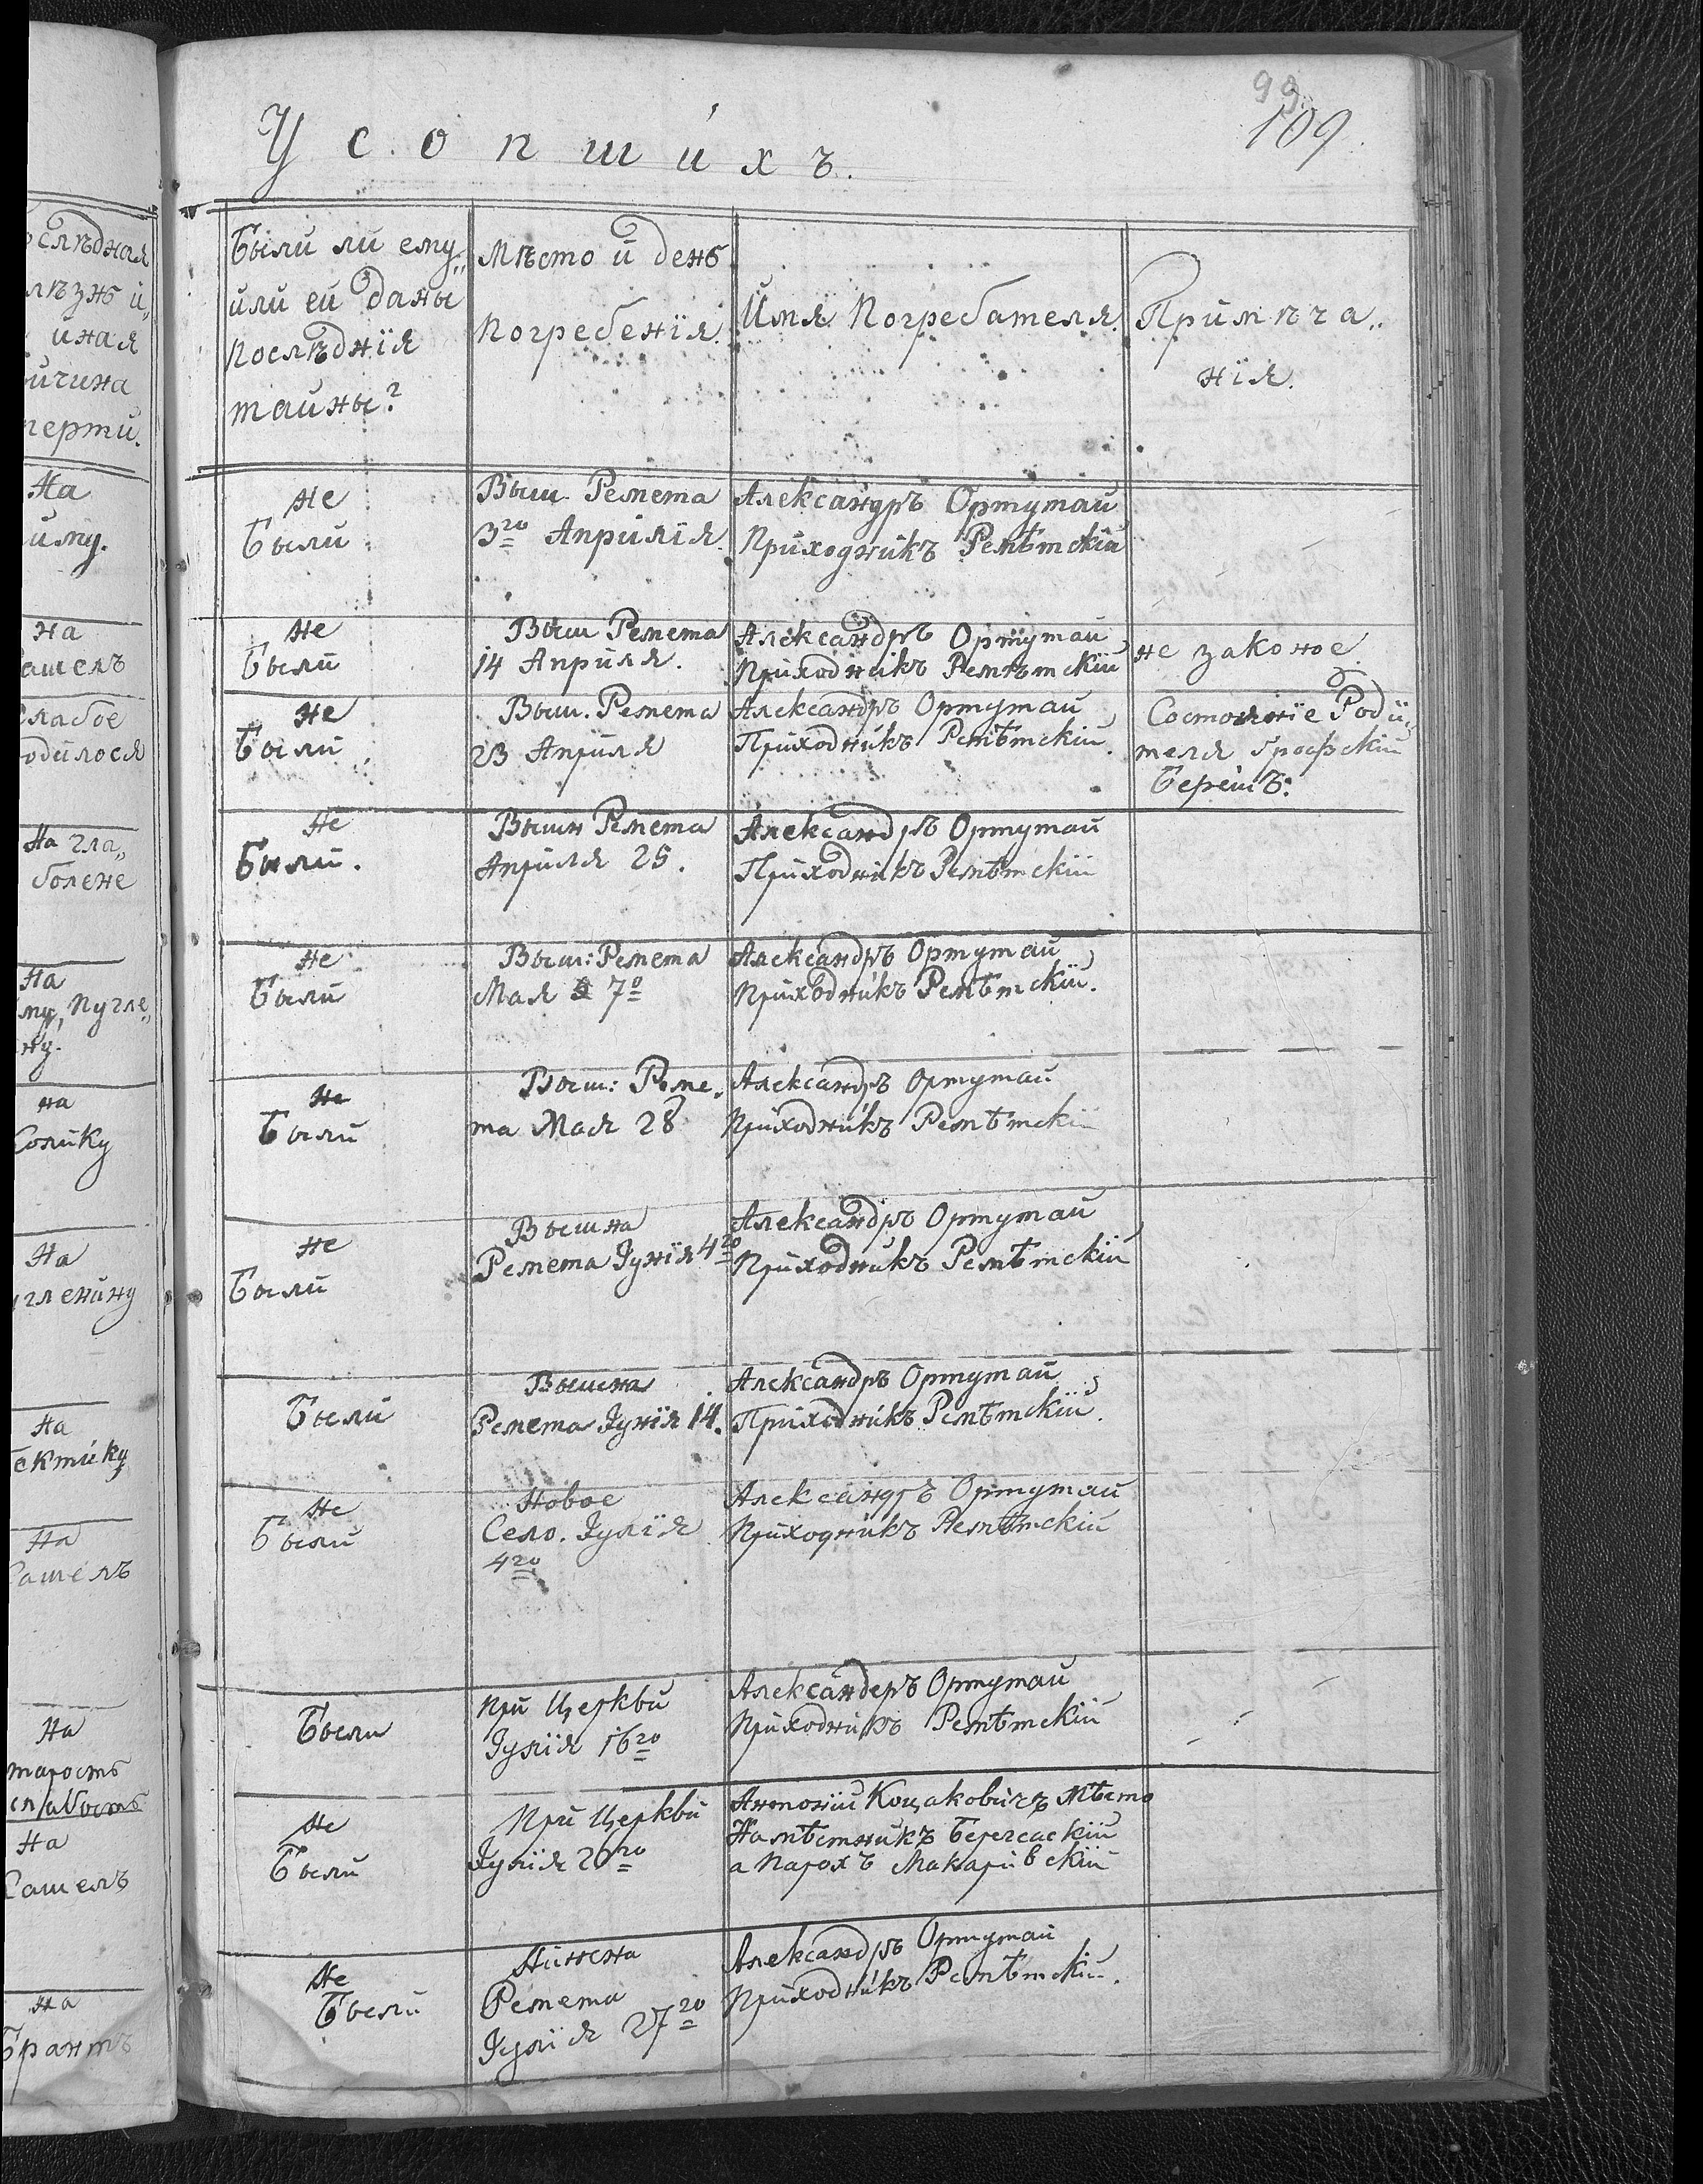 99.
109.
Усопшихъ.
ослѣдная
лѣзнь и„
иная
ричина
мерти.
Были ли ему„
или ей даны
послѣднїя
тайны?
Мѣсто и день
погребенїя.
Имя Погребателя.
Примѣча„
нїя.
На
иму.
Не
Были
Выш. Ремета
3го Априлїя.
Александръ Ортутай
Приходникъ Ремѣтскїй
на
ашелъ
Не
Были
Выш Ремета
14 Априля.
Александръ Ортутай
Приходникъ Ремѣтскїй
не законое.
слабое
родилося
Не
Были
Выш. Ремета
23 Априля
Александръ Ортутай
Приходникъ Ремѣтскїй.
Состоянїе Роди„
теля Графскїй
Берешъ.
На гла„
болене
Не
Были.
Вышн Ремета
Априля 25.
Александръ Ортутай
Приходникъ Ремѣтскїй
На
му, пугле„
ну.
Не
Были
Выш: Ремета
Мая 7о
Александръ Ортутай
Приходникъ Ремѣтскїй.
на
Солику
Не
Были
Выш: Реме„
та Мая 28
Александръ Ортутай
Приходникъ Ремѣтскїй
На
угленину
Не
Были
Вышна
Ремета Јунїя 4го
Александръ Ортутай
Приходникъ Ремѣтскїй
На
Гектику
Были
Вышна
Ремета Јунїя 14.
Александръ Ортутай
Приходникъ Ремѣтскїй.
На
Сашелъ
Не
Были
Новое
Село. Јулїя
4го
Александръ Ортутай
Приходникъ Ремѣтскїй
На
тарость
слабость
Были
При Церкви
Јулїя 16го
Александеръ Ортутай
Приходникъ Ремѣтскїй
На
Сашелъ
Не
Были
При Церкви
Јулїя 20го
Антонїй Коцаковичъ Мѣсто
Намѣстникъ Берегсаскїй
а Парохъ Макаривскїй
на
Грантъ
Не
Были
Нижна
Ремета
Јулїя 27го
Александръ Ортутай
Приходникъ Ремѣтскїй.